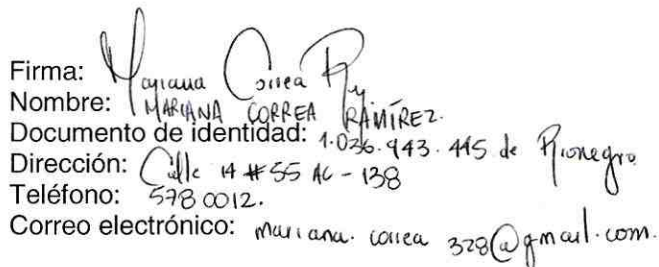 Firma: Mariana Correa Ry
Nombre: MARIANA CORREA RAMÍREZ.
Documento de identidad: 1.036.943.445 de Rionegro
Dirección: Calle 14 # 55 AC - 138
Teléfono: 578 0012.
Correo electrónico: mariana.correa 328@gmail.com.